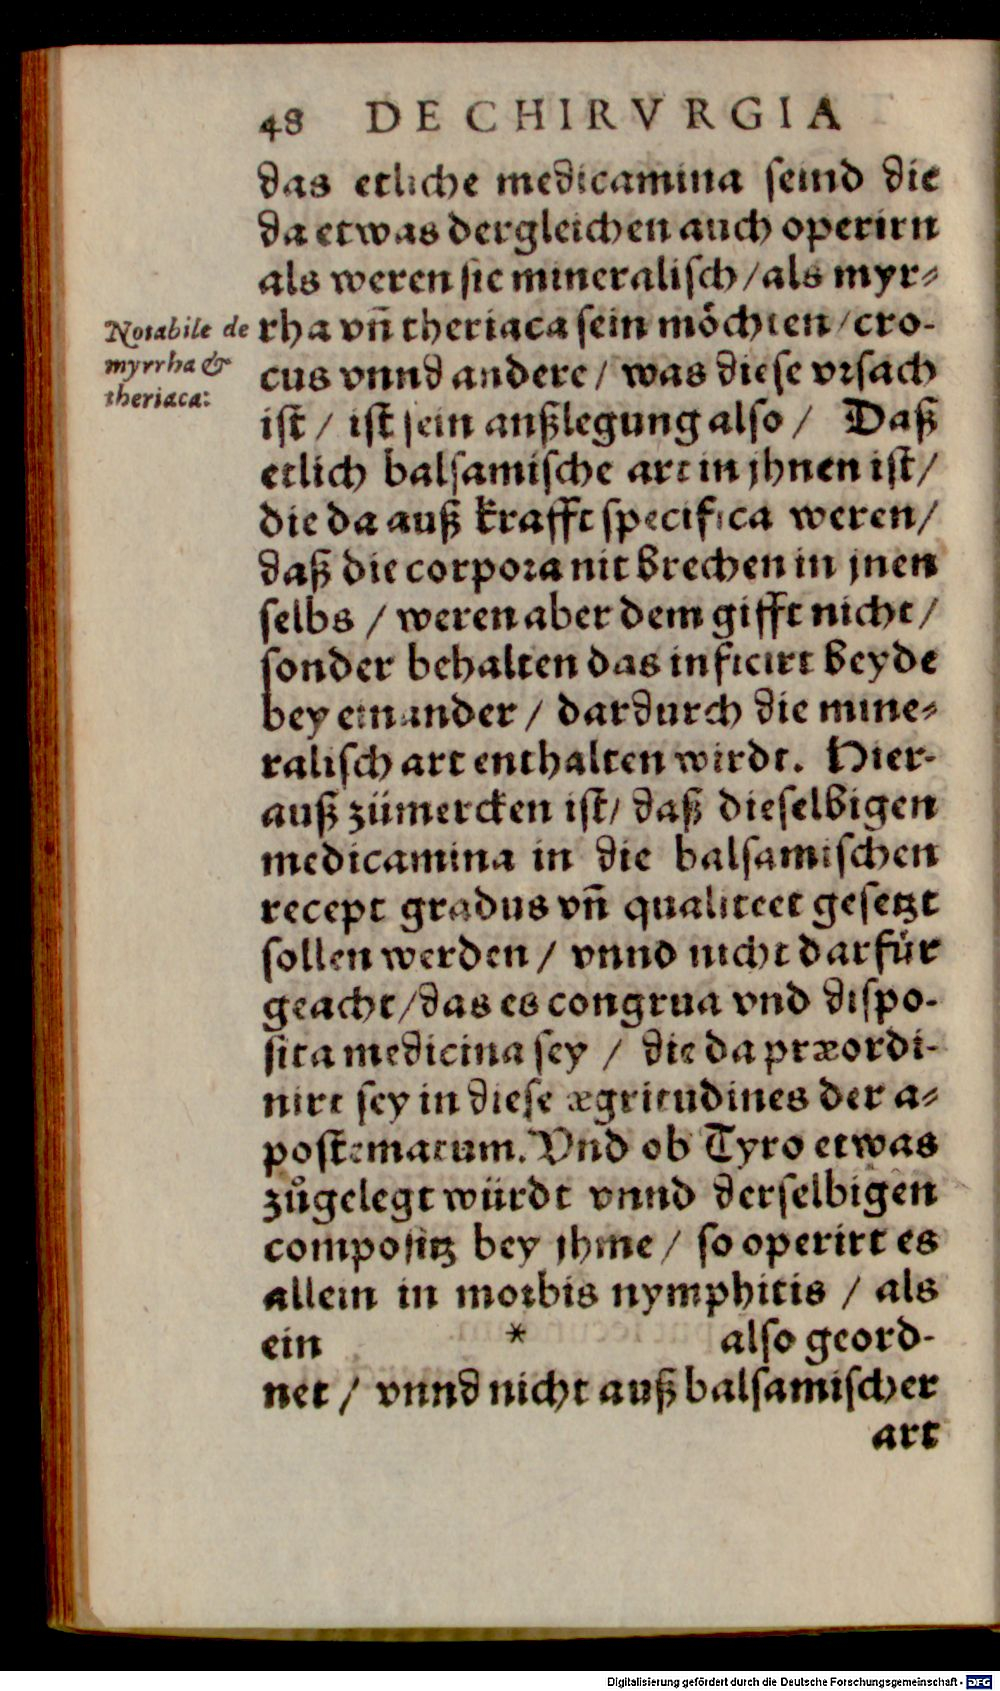 48 DE CHIRVRGIA
das etliche medicamina seind die
da etwas dergleichen auch operirn
als weren sie mineralisch / als myr⸗
Notabile de
myrrha &
theriaca:
rha vn̄ theriaca sein möchten / cro-
cus vnnd andere / was diese vrsach
ist / ist sein außlegung also / Daß
etlich balsamische art in jhnen ist /
die da auß krafft specifica weren /
daß die corpora nit brechen in jnen
selbs / weren aber dem gifft nicht /
sonder behalten das inficirt beyde
bey einander / dardurch die mine⸗
ralisch art enthalten wirdt. Hier-
auß zümercken ist / daß dieselbigen
medicamina in die balsamischen
recept gradus vn̄ qualiteet gesetzt
sollen werden / vnnd nicht darfür
geacht / das es congrua vnd dispo-
sita medicina sey / die da præordi-
nirt sey in diese ægritudines der a⸗
postematum. Vnd ob Tyro etwas
zůgelegt würdt vnnd derselbigen
compositz bey jhme / so operirt es
allein in morbis nymphitis / als
ein * also geord-
net / vnnd nicht auß balsamischer
art
Digitalisierung gefördert durch die Deutsche Forschungsgemeinschaft - DFG